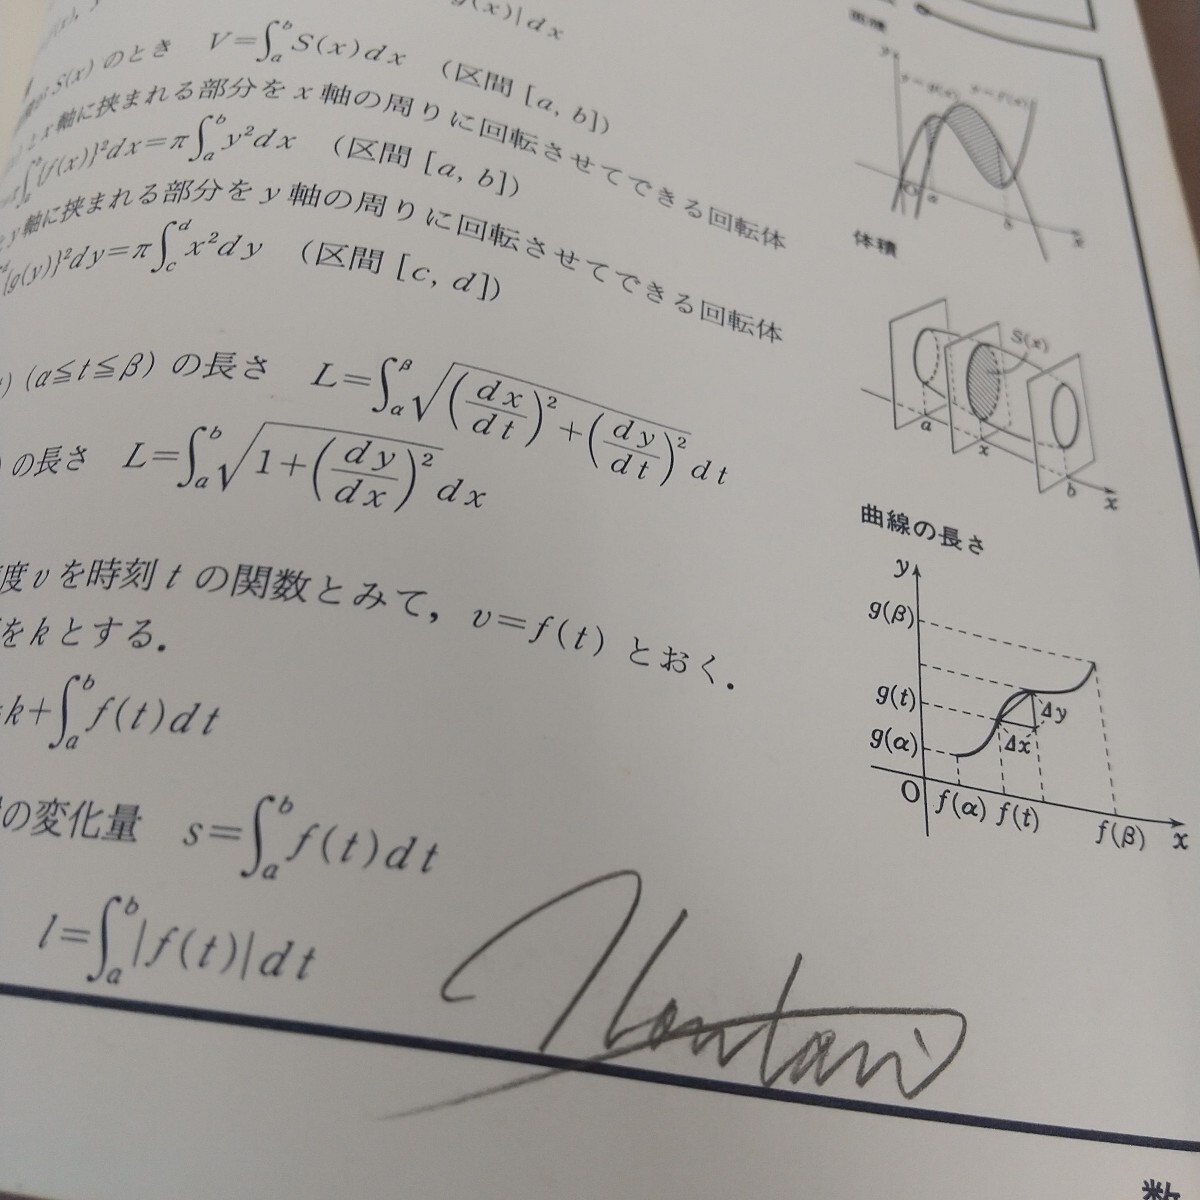 g(x)|dx
S(x) のとき V=∫_a^b S(x)dx (区間 [a, b])
とx軸に挟まれる部分をx軸の周りに回転させてできる回転体
{f(x)}²dx=π∫_a^b y²dx (区間 [a, b])
y軸に挟まれる部分をy軸の周りに回転させてできる回転体
{g(y)}²dy=π∫_c^d x²dy (区間 [c, d])
(α≦t≦β) の長さ L=∫_α^β √((dx/dt)²+(dy/dt)²) dt
の長さ L=∫_a^b √(1+(dy/dx)²) dx
度vを時刻tの関数とみて, v=f(t) とおく.
をkとする.
k+∫_a^b f(t)dt
の変化量 s=∫_a^b f(t)dt
l=∫_a^b |f(t)|dt
面積
y
O
a
b
x
体積
S(x)
a
x
b
x
曲線の長さ
y
g(β)
g(t)
g(α)
Δy
Δx
O f(α) f(t) f(β) x
数